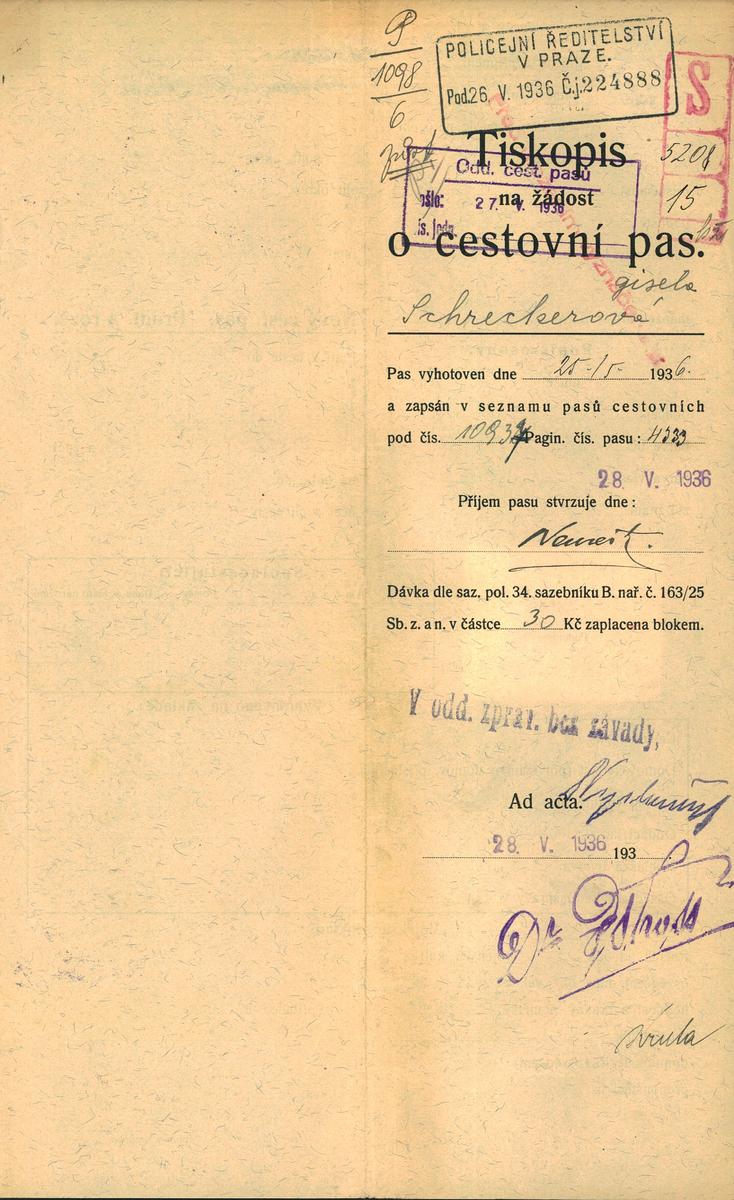 P
1098
6
POLICEJNÍ ŘEDITELSTVÍ
V PRAZE.
Pod. 26. V. 1936 Č.j. 224888
S
5208
15
Tiskopis
Odd. cest. pasů
ošlo: 27. V. 1936
na žádost
is. jedn.
o cestovní pas.
gisela
Schreckerová
Pas vyhotoven dne 25./5. 1936.
a zapsán v seznamu pasů cestovních
pod čís. 10937 Pagin. čís. pasu: 4333
28. V. 1936
Příjem pasu stvrzuje dne:
Dávka dle saz. pol. 34. sazebníku B. nař. č. 163/25
Sb. z. a n. v částce 30 Kč zaplacena blokem.
V odd. zpráv. bez závady,
Ad acta.
28. V. 1936 193
Dr